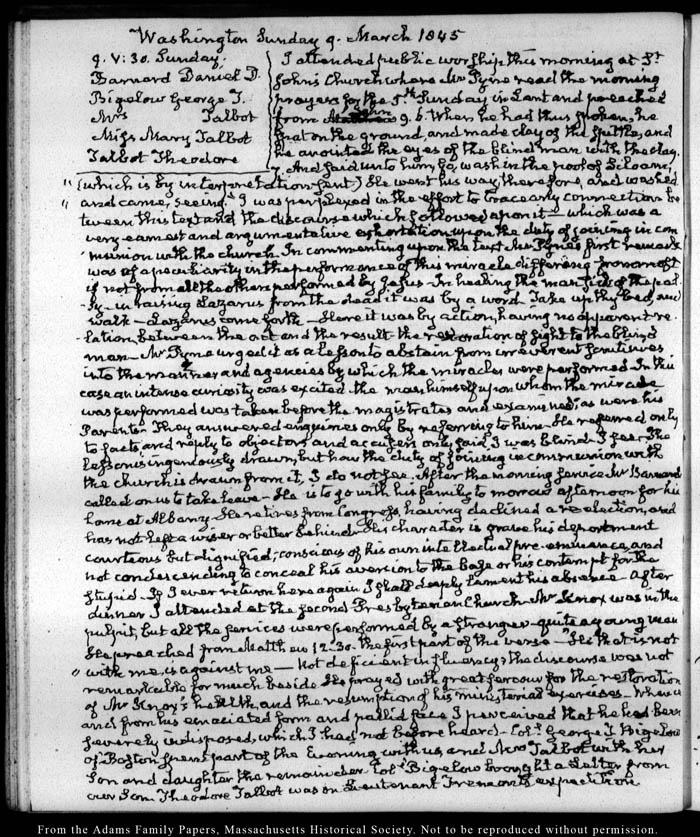 Washington Sunday 9. March 1845
9. V:30. Sunday.
Barnard Daniel D.
Bigelow George T.
Mrs Talbot
Miss Mary Talbot
Talbot Theodore
I attended public worship this morning at St.
Johns Church where Mr Pyne read the morning
prayers for the 5th Sunday in Lent and preached
from John 9.6. When he had thus spoken, he
spat on the ground, and made clay of the spittle, and
he anointed the eyes of the blind man with the clay.
7. And said unto him, Go, wash in the pool of Siloam,
" (which is by interpretation, sent) He went his way therefore, and washed
" and came, seeing." I was perplexed in the effort to trace any connection be
tween this text and the discourse which followed upon it— which was a
very earnest and argumentative exhortation upon the duty of joining in com
munion with the church. In commenting upon the text Mr Pyne's first remark
was of a peculiarity in the performance of this miracle differing from most
if not from all the others performed by Jesus. In healing the man sick of the pal-
sy— in raising Lazarus from the dead it was by a word. Take up thy bed, and
walk— Lazarus come forth— Here it was by action, having no apparent re-
-lation, between the act and the result the restoration of sight to the blind
man— Mr Pyne urged it as a lesson to abstain from irreverent scrutinies
into the manner and agencies by which the miracles were performed. In this
case an intense curiosity was excited. the man himself upon whom the miracle
was performed was taken before the magistrates and examined, as were his
Parents— They answered enquiries only by referring to him. He referred only
to facts and reply to objectors and accusers only said I was blind— I see. The
lesson is ingeniously drawn, but how the duty of joining in communion with
the church is drawn from it, I do not see. After the morning service Mr Barnard
called on us to take leave— He is to go with his family to morrow afternoon for his
home at Albany. He retires from Congress, having declined a re-election, and
has not left a wiser or better behind. His character is grave his deportment
courteous but dignified; conscious of his own intellectual pre-eminence, and
not condescending to conceal his aversion to the base or his contempt for the
stupid. If I ever return here again I shall deeply lament his absence— After
dinner I attended at the second Presbyterian Church. Mr Knox was in the
pulpit, but all the services were performed by a stranger— quite a young man
He preached from Matthew 12.30. the first part of the verse— "He that is not
" with me, is against me— Not deficient in fluency, the discourse was not
remarkable for much beside. He prayed with great fervour for the restoration
of Mr Knox's health, and the resumption of his ministerial exercises—
and from his emaciated form and pallid face I perceived that he had been
severely indisposed, which I had not before heard— Col. George T. Bigelow
of Boston spent part of the Evening with us, and Mrs Talbot with her
Son and daughter the remainder. Col. Bigelow brought a Letter from
our Son. Theodore Talbot was on Lieutenant Fremont's expedition
From the Adams Family Papers, Massachusetts Historical Society. Not to be reproduced without permission.